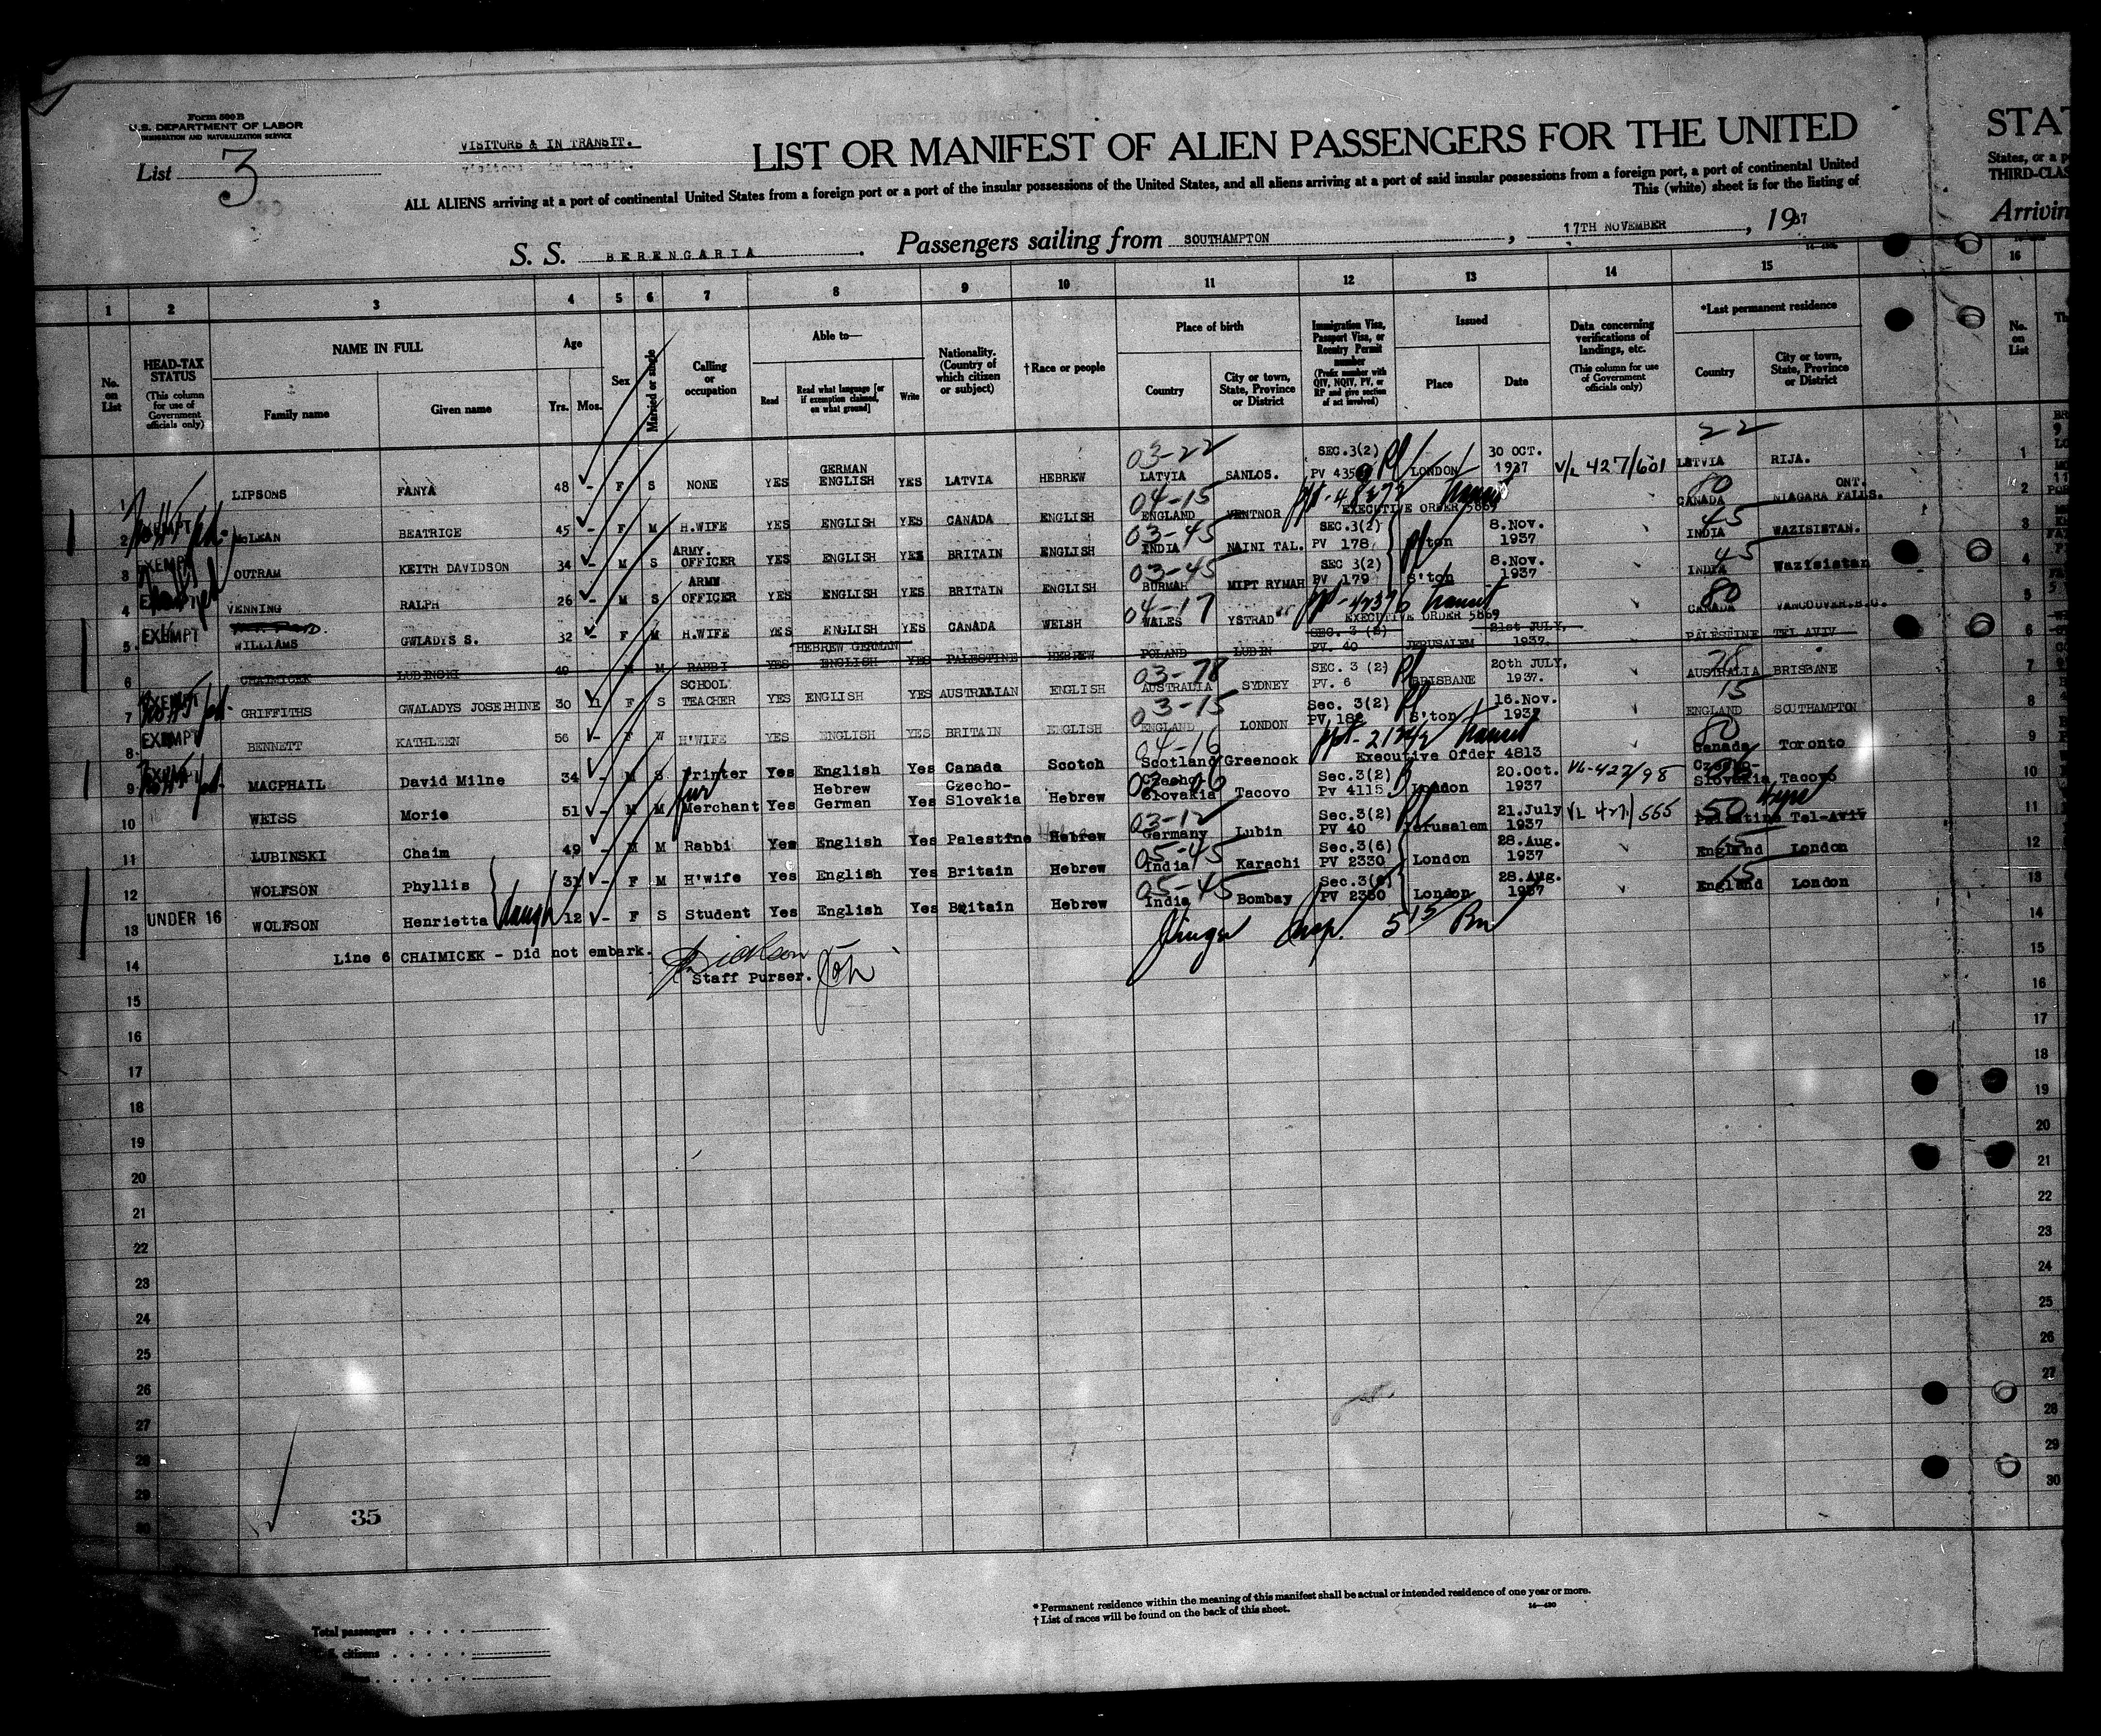 Form 500 B
U.S. DEPARTMENT OF LABOR
IMMIGRATION AND NATURALIZATION SERVICE
List 3
VISITORS & IN TRANSIT.
LIST OR MANIFEST OF ALIEN PASSENGERS FOR THE UNITED
STA
ALL ALIENS arriving at a port of continental United States from a foreign port or a port of the insular possessions of the United States, and all aliens arriving at a port of said insular possessions from a foreign port, a port of continental United
States, or a p
This (white) sheet is for the listing of
THIRD-CLAS
Arrivin
S. S. BERENGARIA. Passengers sailing from SOUTHAMPTON, 17TH NOVEMBER, 1937
1 2 3 4 5 6 7 8 9 10 11 12 13 14 15 16
No. on List
HEAD-TAX STATUS (This column for use of Government officials only)
NAME IN FULL
Family name
Given name
Age
Yrs. Mos.
Sex
Married or single
Calling or occupation
Able to—
Read
Read what language [or if exemption claimed, on what ground]
Write
Nationality. (Country of which citizen or subject)
† Race or people
Place of birth
Country
City or town, State, Province or District
Immigration Visa, Passport Visa, or Reentry Permit number (Prefix number with QIV, NQIV, PV, or RP and give section of act involved)
Issued
Place
Date
Data concerning verifications of landings, etc. (This column for use of Government officials only)
*Last permanent residence
Country
City or town, State, Province or District
No. on List
1 LIPSONS FANYA 48 - F S NONE YES GERMAN ENGLISH YES LATVIA HEBREW 03-22 LATVIA SANLOS. SEC.3(2) PV 4356 LONDON 30 OCT. 1937 V/L 427/601 22 LATVIA RIJA. 1
2 EXEMPT McLEAN BEATRICE 45 - F M H.WIFE YES ENGLISH YES CANADA ENGLISH 04-15 ENGLAND VENTNOR ppt-48272 transit EXECUTIVE ORDER 5869 80 CANADA ONT. NIAGARA FALLS. 2
3 EXEMPT OUTRAM KEITH DAVIDSON 34 - M S ARMY. OFFICER YES ENGLISH YES BRITAIN ENGLISH 03-45 INDIA NAINI TAL. SEC.3(2) PV 178 S'ton 8.Nov. 1937 45 INDIA WAZISISTAN. 3
4 VENNING RALPH 26 - M S ARMY OFFICER YES ENGLISH YES BRITAIN ENGLISH 03-45 BURMAH MIPT RYMAH SEC 3(2) PV 179 S'ton 8.Nov. 1937 45 INDIA Wazisistan 4
5 EXEMPT WILLIAMS GWLADYS S. 32 - F M H.WIFE YES ENGLISH YES CANADA WELSH 04-17 WALES YSTRAD ppt-42376 transit EXECUTIVE ORDER 5869 80 CANADA VANCOUVER.B.C. 5
6 CHAIMICEK LUBINSKI 49 M M RABBI YES HEBREW GERMAN ENGLISH YES PALESTINE HEBREW POLAND LUBIN SEC. 3 (2) PV. 40 JERUSALEM 21st JULY, 1937. PALESTINE TEL AVIV 6
7 EXEMPT GRIFFITHS GWALADYS JOSEPHINE 30 11 F S SCHOOL TEACHER YES ENGLISH YES AUSTRALIAN ENGLISH 03-78 AUSTRALIA SYDNEY SEC. 3 (2) PV. 6 BRISBANE 20th JULY, 1937. 78 AUSTRALIA BRISBANE 7
8 EXEMPT BENNETT KATHLEEN 56 - F W H'WIFE YES ENGLISH YES BRITAIN ENGLISH 03-15 ENGLAND LONDON Sec. 3(2) PV 182 S'ton 16.Nov. 1937 15 ENGLAND SOUTHAMPTON 8
9 EXEMPT MACPHAIL David Milne 34 - M S Printer Yes English Yes Canada Scotch 04-16 Scotland Greenock transit Executive Order 4813 80 Canada Toronto 9
10 WEISS Morie 51 - M M fur Merchant Yes Hebrew German Yes Czecho-Slovakia Hebrew 03-06 Czecho-Slovakia Tacovo Sec.3(2) PV 4115 London 20.Oct. 1937 VL-427/98 Czecho-Slovakia Tacovo 10
11 LUBINSKI Chaim 49 - M M Rabbi Yes English Yes Palestine Hebrew 03-12 Germany Lubin Sec.3(2) PV 40 Jerusalem 21.July 1937 VL 427/555 50 Palestine Tel-Aviv 11
12 WOLFSON Phyllis 37 - F M H'wife Yes English Yes Britain Hebrew 05-45 India Karachi Sec.3(6) PV 2330 London 28.Aug. 1937 15 England London 12
13 UNDER 16 WOLFSON Henrietta daugh 12 - F S Student Yes English Yes Britain Hebrew 05-45 India Bombay Sec.3(6) PV 2330 London 28.Aug. 1937 15 England London 13
Line 6 CHAIMICEK - Did not embark.
Staff Purser.
Insp. 515 Pm
14 14
15 15
16 16
17 17
18 18
19 19
20 20
21 21
22 22
23 23
24 24
25 25
26 26
27 27
28 28
29 29
30 30
35
* Permanent residence within the meaning of this manifest shall be actual or intended residence of one year or more.
† List of races will be found on the back of this sheet.
14—480
Total passengers
citizens